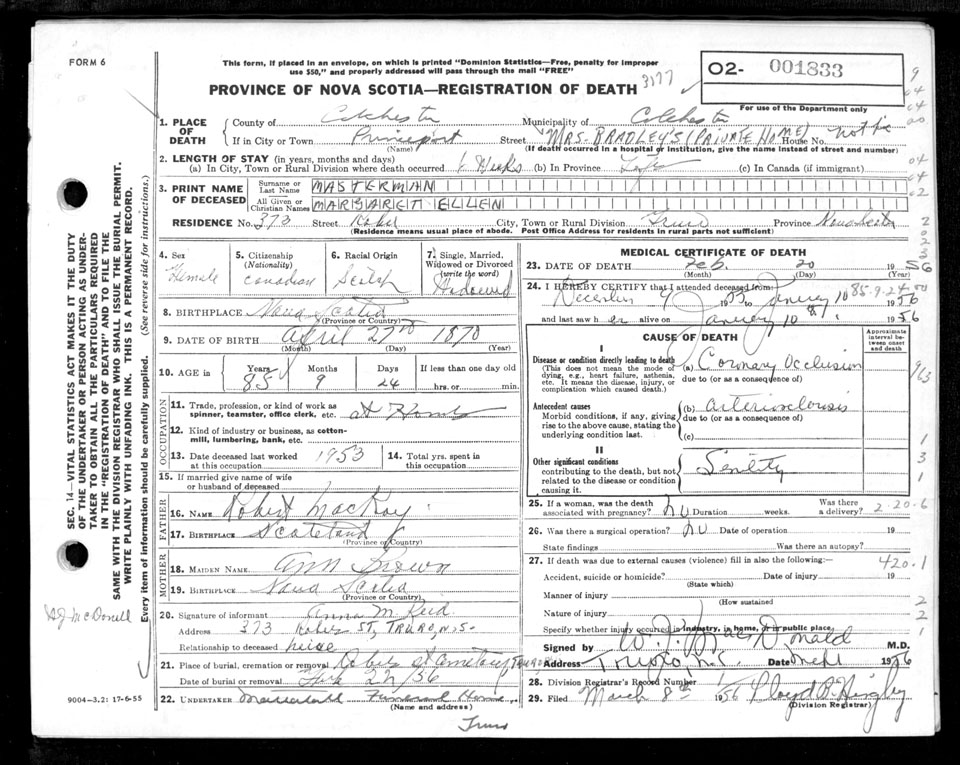 FORM 6
This form, if placed in an envelope, on which is printed "Dominion Statistics—Free, penalty for improper
use $50," and properly addressed will pass through the mail "FREE"
3177
O2- 001833
For use of the Department only
PROVINCE OF NOVA SCOTIA—REGISTRATION OF DEATH
1. PLACE OF DEATH
County of Colchester Municipality of Colchester
If in City or Town Street MRS. BRADLEY'S (PRIVATE HOME) House No.
(Name) (If death occurred in a hospital or institution, give the name instead of street and number)
2. LENGTH OF STAY (in years, months and days)
(a) In City, Town or Rural Division where death occurred 6 Weeks (b) In Province Life (c) In Canada (if immigrant)
3. PRINT NAME OF DECEASED
Surname or Last Name MASTERMAN
All Given or Christian Names MARGARET ELLEN
RESIDENCE No. 373 Street Robie City, Town or Rural Division Truro Province Nova Scotia
(Residence means usual place of abode. Post Office Address for residents in rural parts not sufficient)
4. Sex
Female
5. Citizenship (Nationality)
Canadian
6. Racial Origin
Scotch
7. Single, Married, Widowed or Divorced (write the word)
Widowed
8. BIRTHPLACE Nova Scotia
(Province or Country)
9. DATE OF BIRTH April 27th 1870
(Month) (Day) (Year)
10. AGE in Years Months Days If less than one day old
85 9 24 hrs. or min.
OCCUPATION
11. Trade, profession, or kind of work as
spinner, teamster, office clerk, etc. at Home
12. Kind of industry or business, as cotton-
mill, lumbering, bank, etc.
13. Date deceased last worked at this occupation 1953
14. Total yrs. spent in this occupation
15. If married give name of wife
or husband of deceased
FATHER
16. NAME Robert MacKay
17. BIRTHPLACE Scotland
(Province or Country)
MOTHER
18. MAIDEN NAME Ann Brown
19. BIRTHPLACE Nova Scotia
(Province or Country)
20. Signature of informant Anna M. Reid
Address 373 Robie ST, TRURO, N.S.
Relationship to deceased neice
21. Place of burial, cremation or removal Robie St Cemetery TRURO
Date of burial or removal Feb 22/56
22. UNDERTAKER Funeral Home
(Name and address)
Truro
MEDICAL CERTIFICATE OF DEATH
23. DATE OF DEATH Feb. 20 1956
(Month) (Day) (Year)
24. I HEREBY CERTIFY that I attended deceased from:
December 9 1955 January 10 1956
85-9-24
and last saw her alive on January 10 1956
CAUSE OF DEATH
Approximate interval between onset and death
I
Disease or condition directly leading to death
(This does not mean the mode of
dying, e.g., heart failure, asthenia,
etc. It means the disease, injury, or
complication which caused death.)
(a) Coronary Occlusion
due to (or as a consequence of)
Antecedent causes
Morbid conditions, if any, giving
rise to the above cause, stating the
underlying condition last.
(b) Arteriosclerosis
due to (or as a consequence of)
(c)
II
Other significant conditions
contributing to the death, but not
related to the disease or condition
causing it.
Senility
25. If a woman, was the death associated with pregnancy? No Duration weeks. Was there a delivery?
2-20-6
26. Was there a surgical operation? No Date of operation 19
State findings Was there an autopsy?
27. If death was due to external causes (violence) fill in also the following:—
420.1
Accident, suicide or homicide? Date of injury 19
(State which)
Manner of injury
(How sustained)
Nature of injury
Specify whether injury occurred in industry, in home, or in public place.
Signed by W. J. MacDonald M.D.
Address Truro, N.S. Date 1956
28. Division Registrar's Record Number
29. Filed March 8th 1956
(Division Registrar)
SEC. 14—VITAL STATISTICS ACT MAKES IT THE DUTY
OF THE UNDERTAKER OR PERSON ACTING AS UNDER-
TAKER TO OBTAIN ALL THE PARTICULARS REQUIRED
IN THE "REGISTRATION OF DEATH" AND TO FILE THE
SAME WITH THE DIVISION REGISTRAR WHO SHALL ISSUE THE BURIAL PERMIT.
WRITE PLAINLY WITH UNFADING INK. THIS IS A PERMANENT RECORD.
Every item of information should be carefully supplied. (See reverse side for instructions.)
9004-3.2: 17-6-55